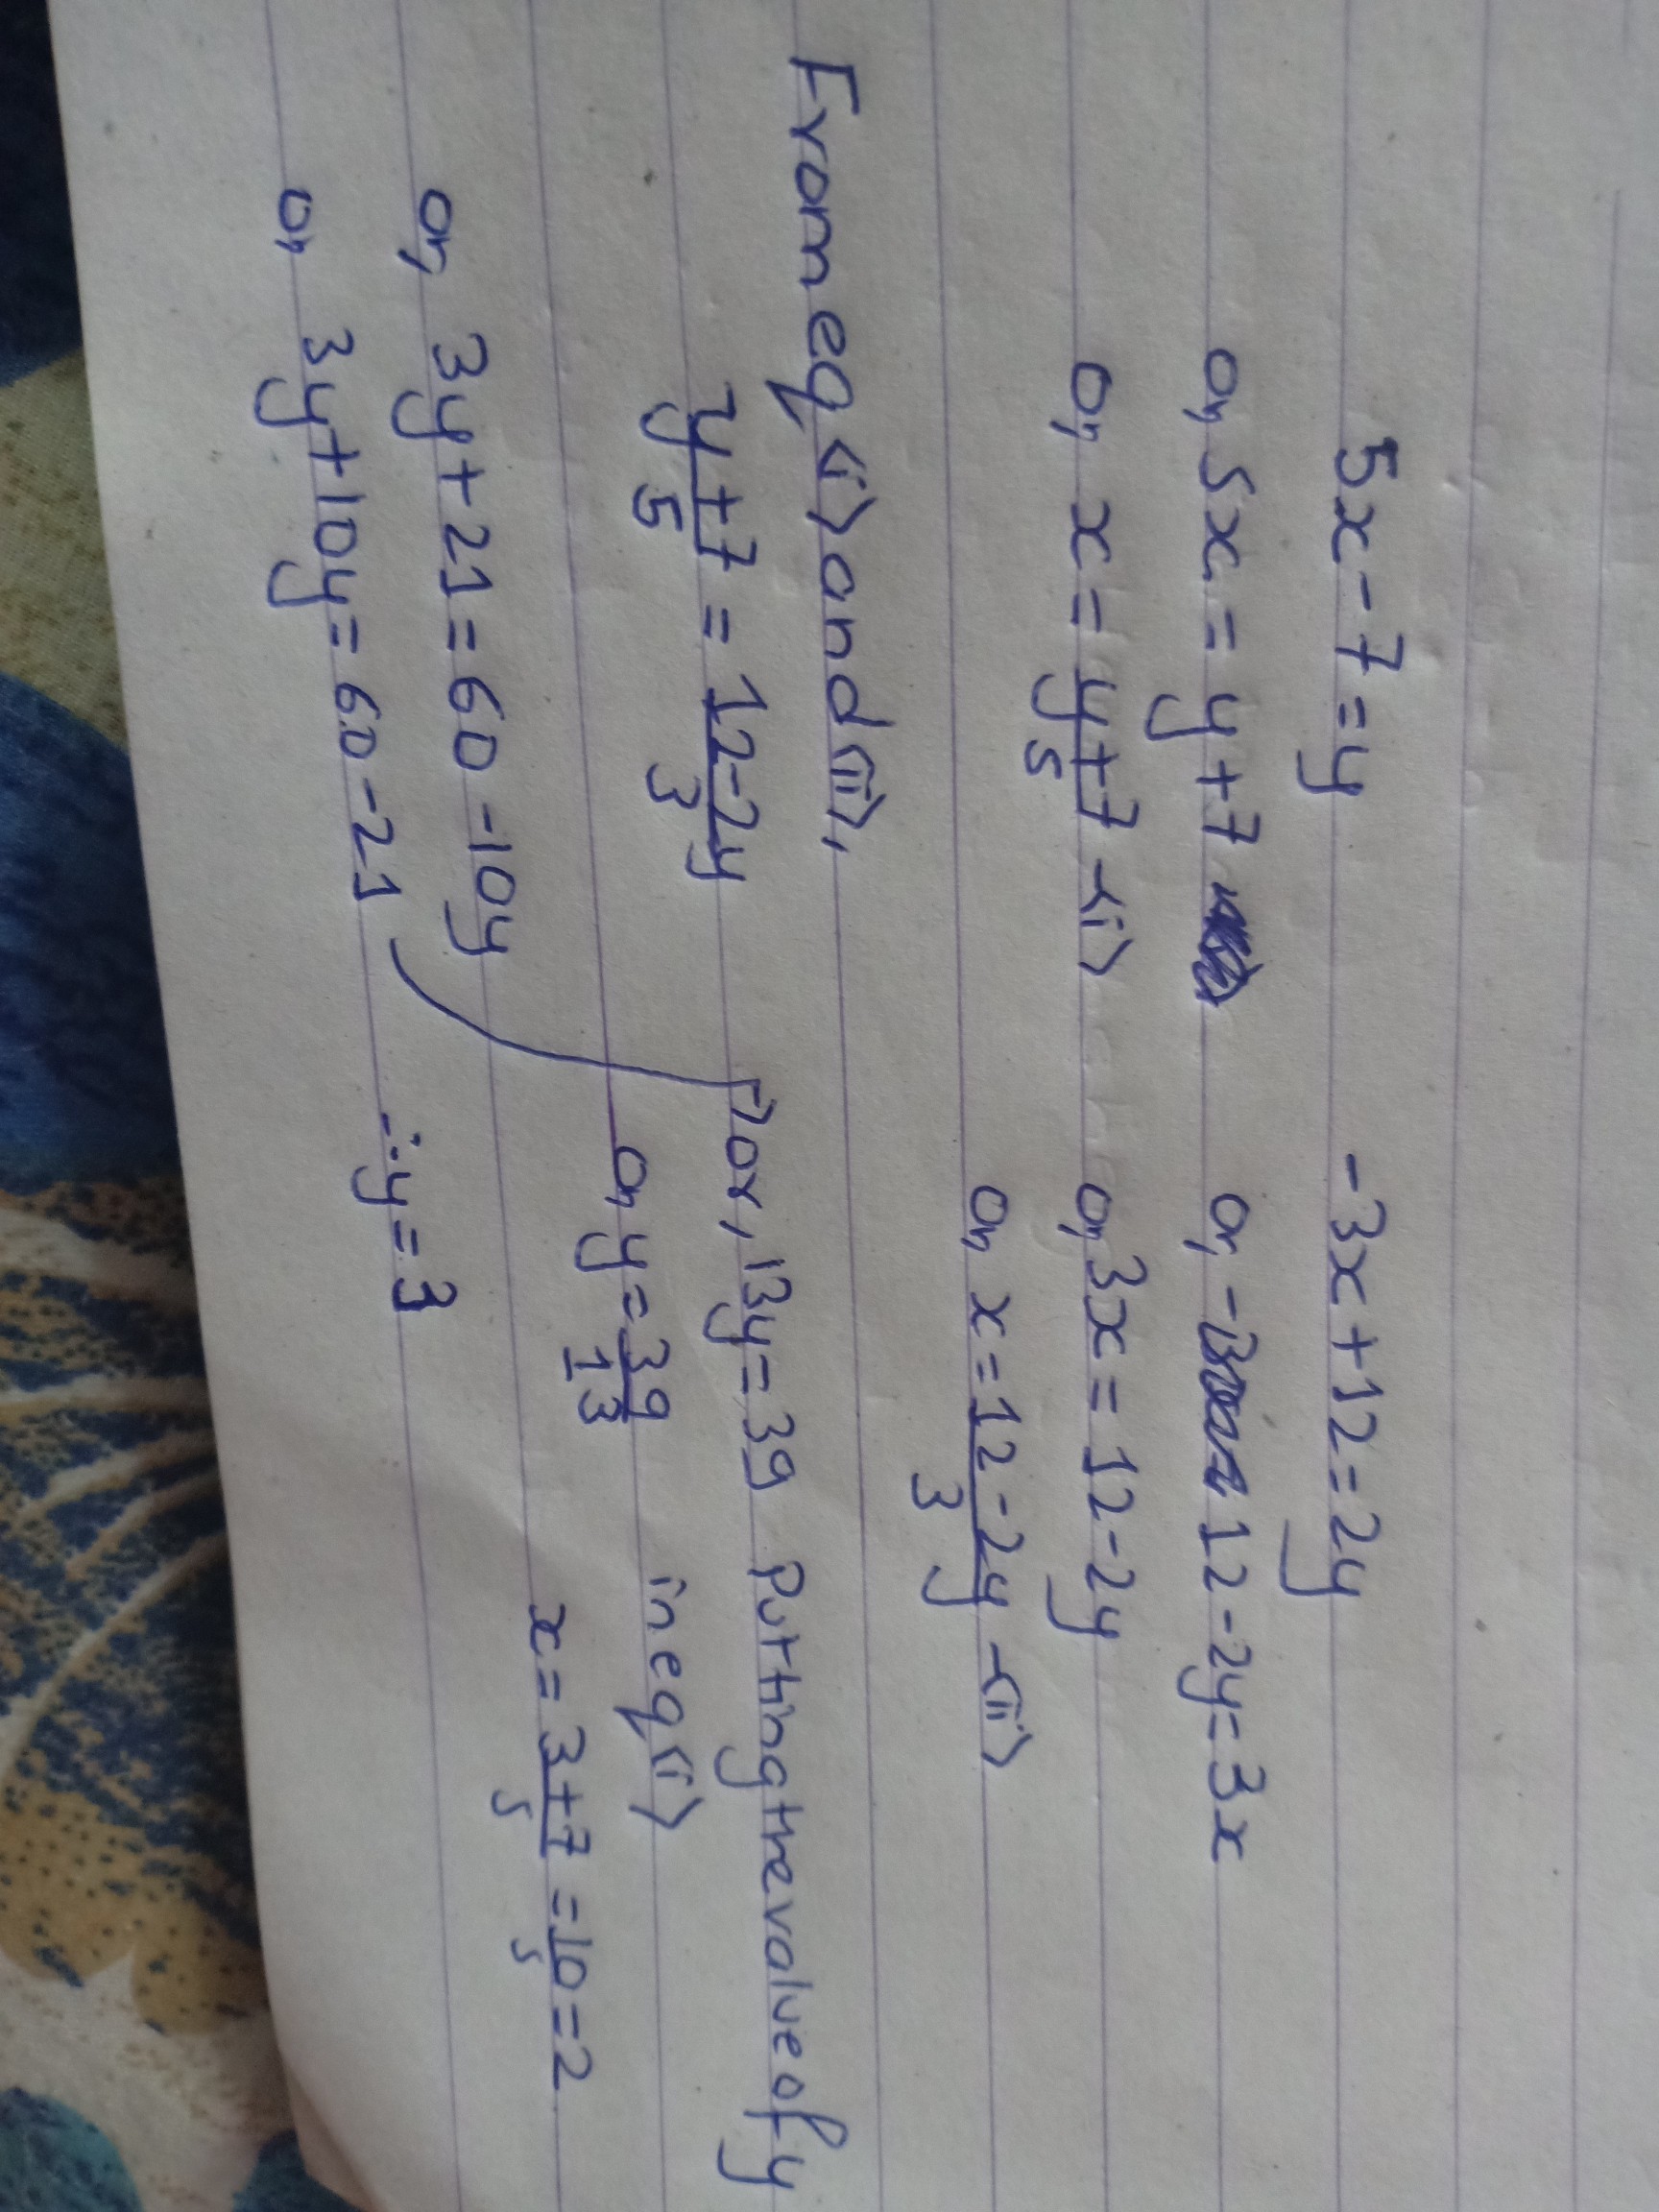 5x-7=y -3x+12=2y
or, 5x=y+7 or, - 12-2y=3x
or, x=y+7/5 -<i> or, 3x=12-2y
or, x=12-2y/3 -<ii>
From eq <i> and <ii>,
y+7/5 = 12-2y/3 or, 13y=39 Putting the value of y
or, 3y+21=60-10y or, y=39/13 in eq <i>
or, 3y+10y=60-21 ∴y=3 x=3+7/5=10/5=2